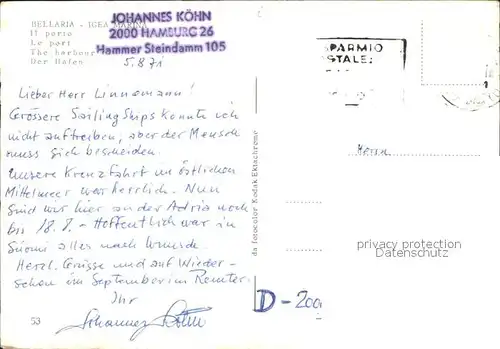 BELLARIA - IGEA MARINA
Il porto
Le port
The harbour
Der Hafen
JOHANNES KÖHN
2000 HAMBURG 26
Hammer Steindamm 105
5.8.71
Lieber Herr Linnemann!
Grössere Sailing Ships konnte ich
nicht auftreiben, aber der Mensch
muss sich bescheiden.
Unsere Kreuzfahrt im östlichen
Mittelmeer war herrlich. Nun
sind wir hier an der Adria noch
bis 18.8. - Hoffentlich war in
Suomi alles nach Wunsch.
Herzl. Grüsse und auf Wieder-
sehen im September im Remter.
Ihr
Johannes Köhn
53
da fotocolor Kodak Ektachrome
PARMIO
STALE:
Herrn
privacy protection
D-200